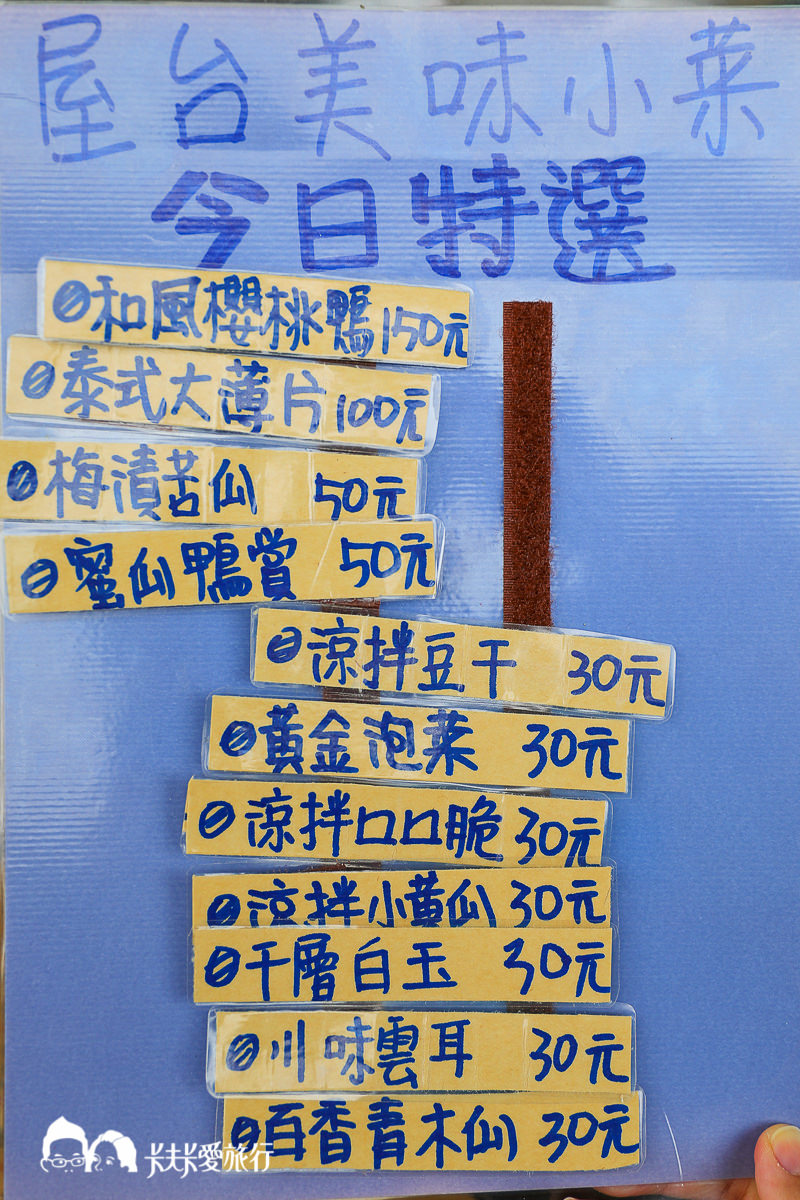 屋台美味小菜
今日特選
和風櫻桃鴨150元
泰式大薄片100元
梅漬苦仙 50元
蜜仙鴨賞 50元
涼拌豆干 30元
黃金泡菜 30元
涼拌口口脆30元
涼拌小黃仙30元
千層白玉 30元
川味雲耳 30元
百香青木仙 30元
卡夫卡愛旅行